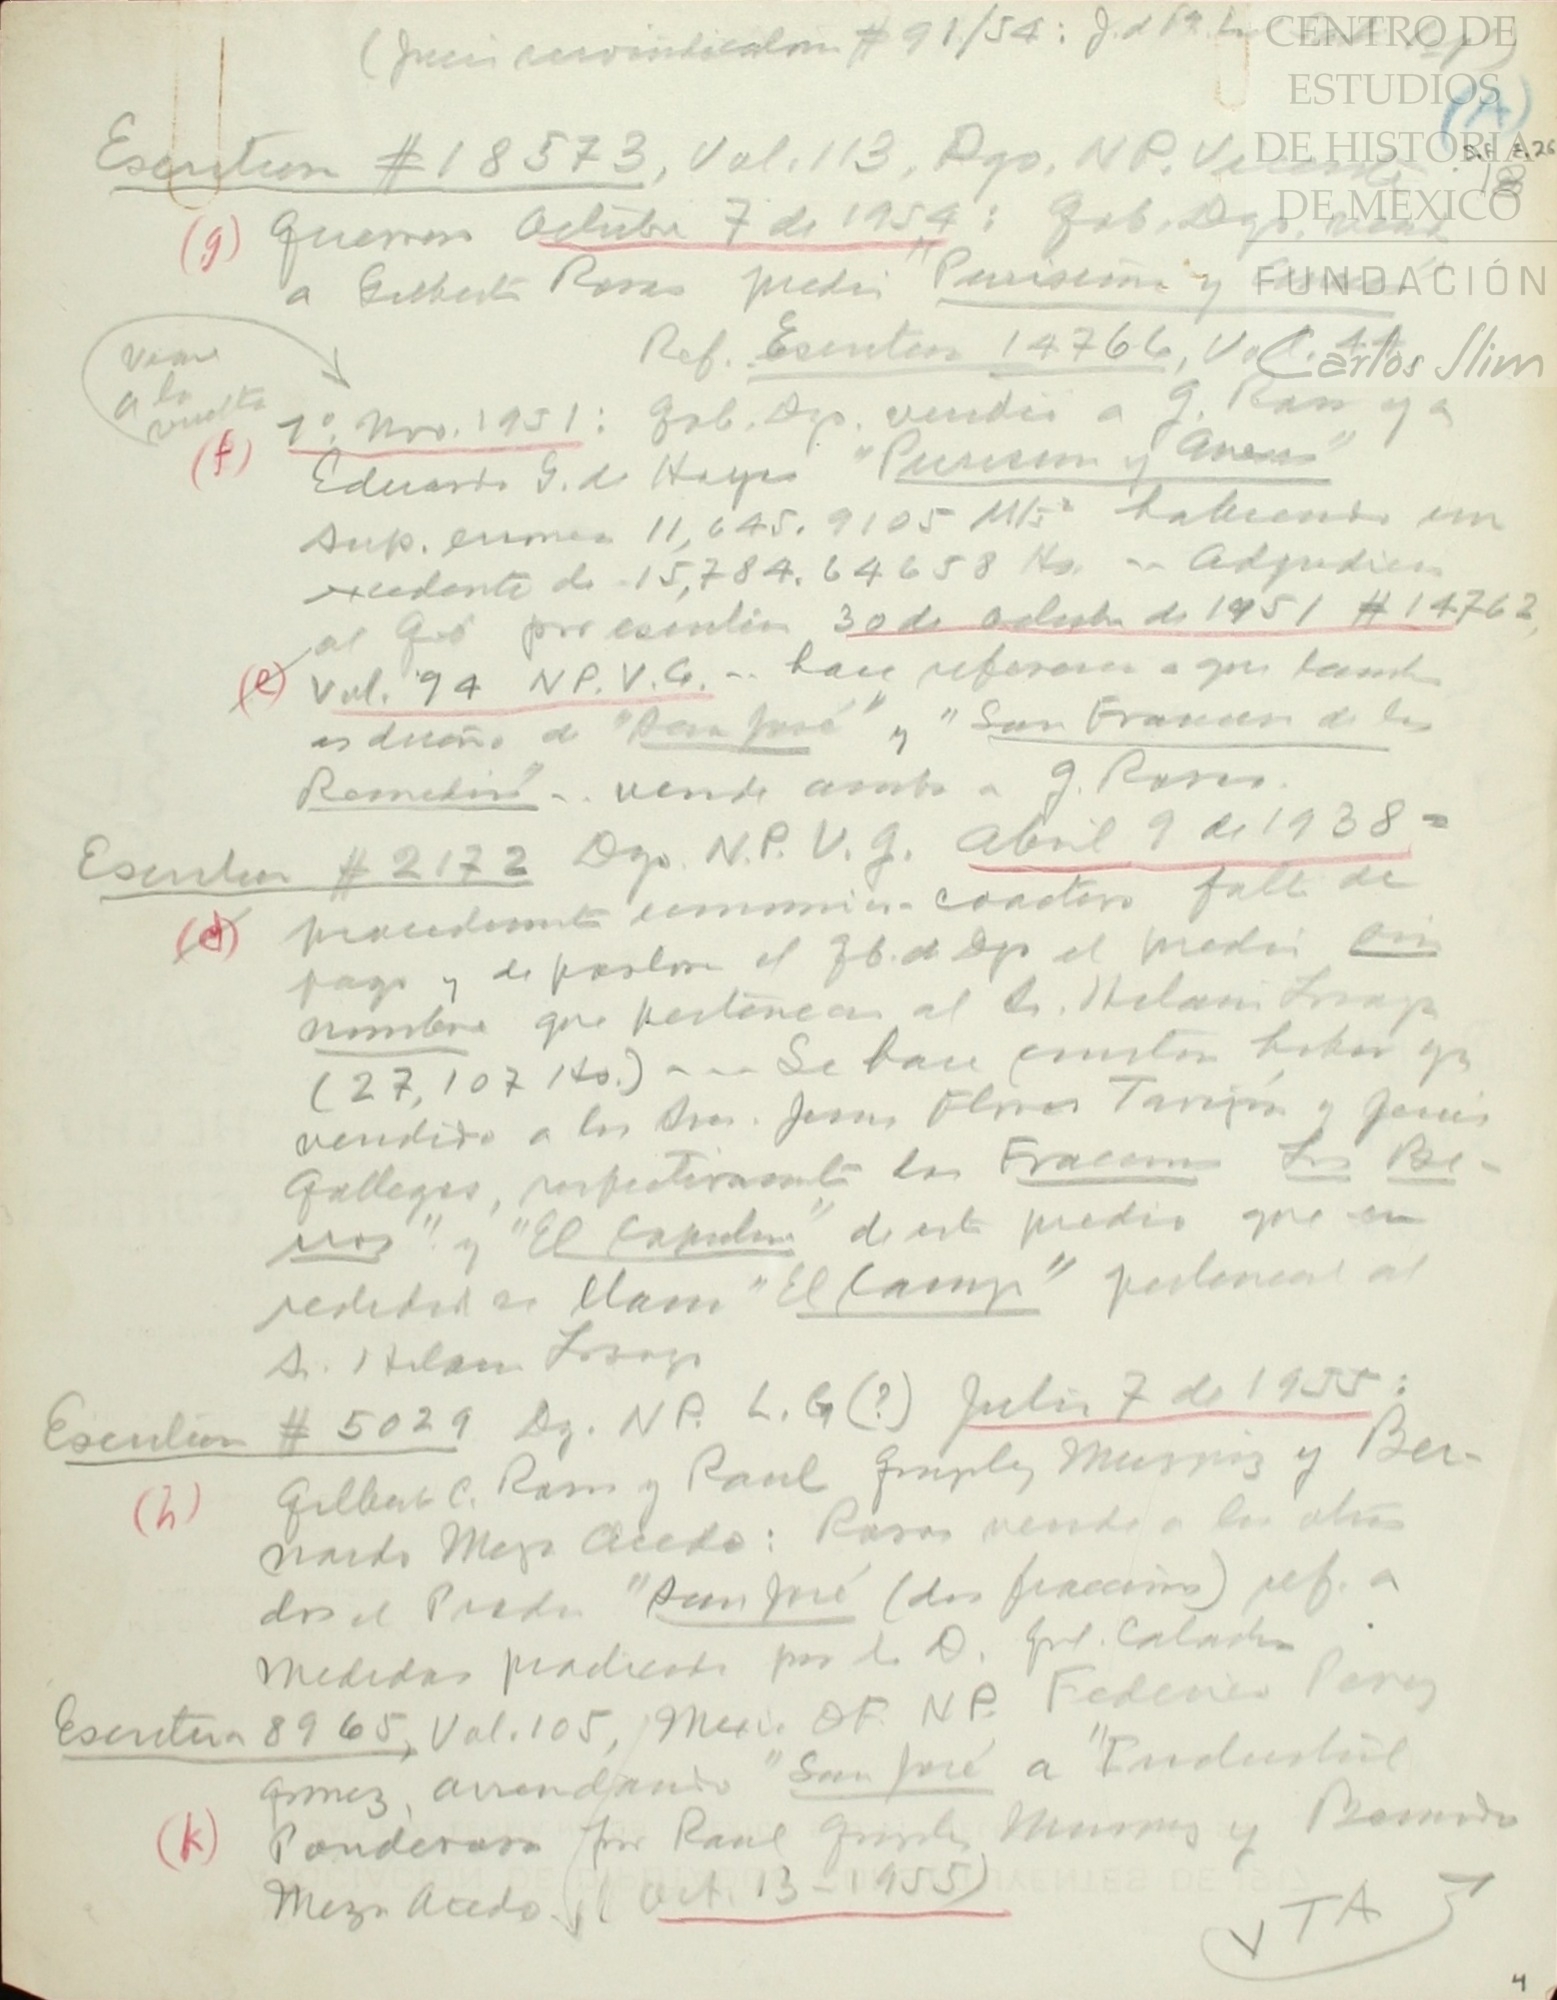 (Juicio reivindicatorio # 91/54: J. d
CENTRO DE
ESTUDIOS
DE HISTORIA
DE MEXICO
FUNDACIÓN
Carlos Slim
(A)
Escritura #18573, Vol. 113, Dgo. N.P. Vicente
(g) Guerrero Octubre 7 de 1954: Gob. Dgo. vende
a Gilberto Rosas predio "Purísima y
Ref. Escritura 14766, Vol.
Véase a la vuelta
(f) 1º. Nov. 1951: Gob. Dgo. vendió a G. Rosas y a
Eduardo G. de Hoyos "Purísima y Anexas"
sup. 11,645.9105 habiendo un
excedente de 15,784.64658 Hs. -- Adjudica
al Gob por escritura 30 de Octubre de 1951 #14762,
(e) Vol. 94 N.P. V.G. -- hace referencia a que también
es dueño de "San José" y "San Francisco de los
Remedios" -- vende ambos a G. Rosas.
Escritura #2172 Dgo. N.P. V.G. Abril 9 de 1938 =
(d) procedimiento económico-coactivo falta de
pago y de el Gb. d Dgo el predio sin
nombre que pertenecía al Sr. Hilario Lozoya
(27,107 Hs.) --- Se hace constar haber ya
vendido a los Sres. Jesús Flores Tavizón y Jesús
Gallegos, respectivamente las Fracciones Los Be-
rros" y "El Capulín" de este predio que en
realidad se llama "El Campo" perteneció al
Sr. Hilario Lozoya
Escritura # 5029 Dg. N.P. L.G (?) Julio 7 de 1955:
(h) Gilberto C. Rosas y Raul González Munguía y Ber-
nardo Meza Acedo: Rosas vende a los otros
dos el Predio "San José (dos fracciones) ref. a
medidas practicadas por la D. Gral. Catastro
Escritura 8965, Vol. 105, Mexico D.F. N.P. Federico Perez
Gómez, arrendando "San José a "Industrial
(k) Ponderosa por Raul González y Bernardo
Meza Acedo (Oct. 13-1955)
VTA
4